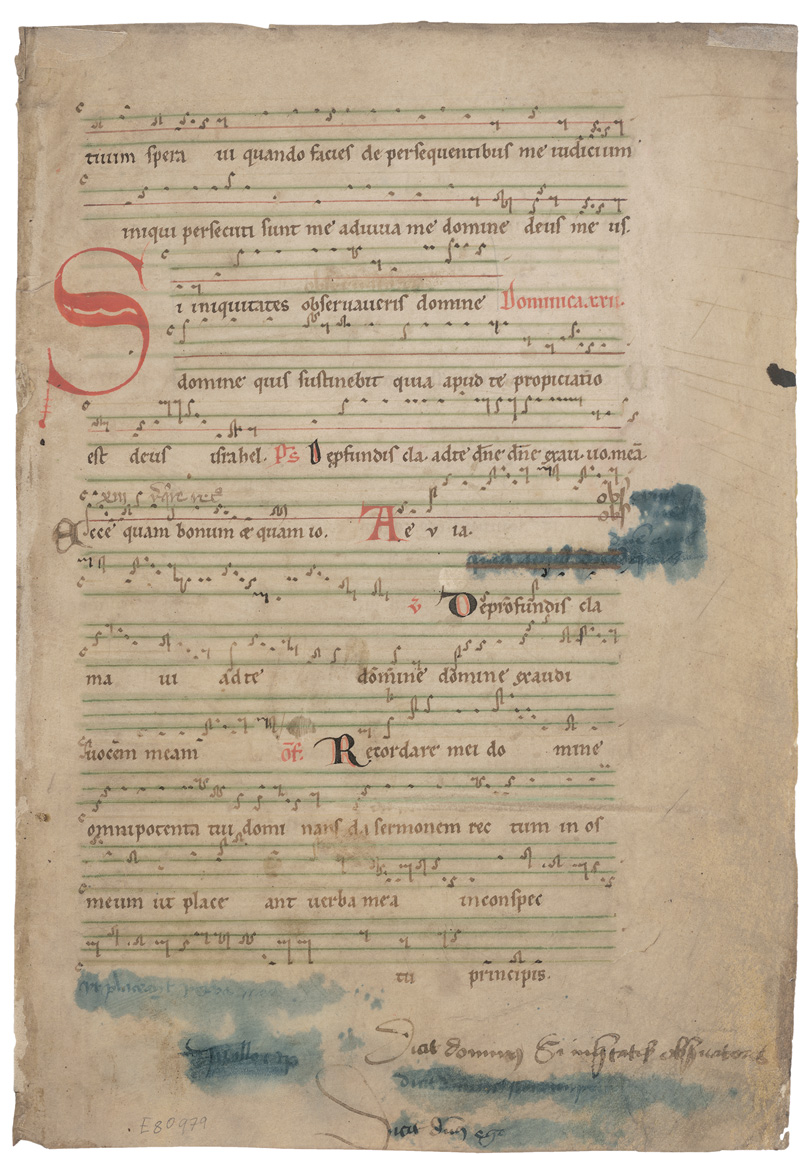 tiuim spera ui quando facies de persequentibus me iudicium
iniqui persecuti sunt me adiuua me domine deus me us.
Si iniquitates obseruaueris domine Dominica.xxii.
domine quis sustinebit quia apud te propiciatio
est deus israhel. Ps Depfundis cla. adte dne dne exau. uo. meā
Ecce quam bonum & quam io. Ae v ia.
v Deprofundis cla
ma ui adte domine domine exaudi
uocem meam of. Recordare mei do mine
omnipotenta tui domi nans da sermonem rec tum in os
meum ut place ant uerba mea inconspec
tu principis.
ut placeant verba mea
Dicit dominus Si
Dicit dns ego
E80979